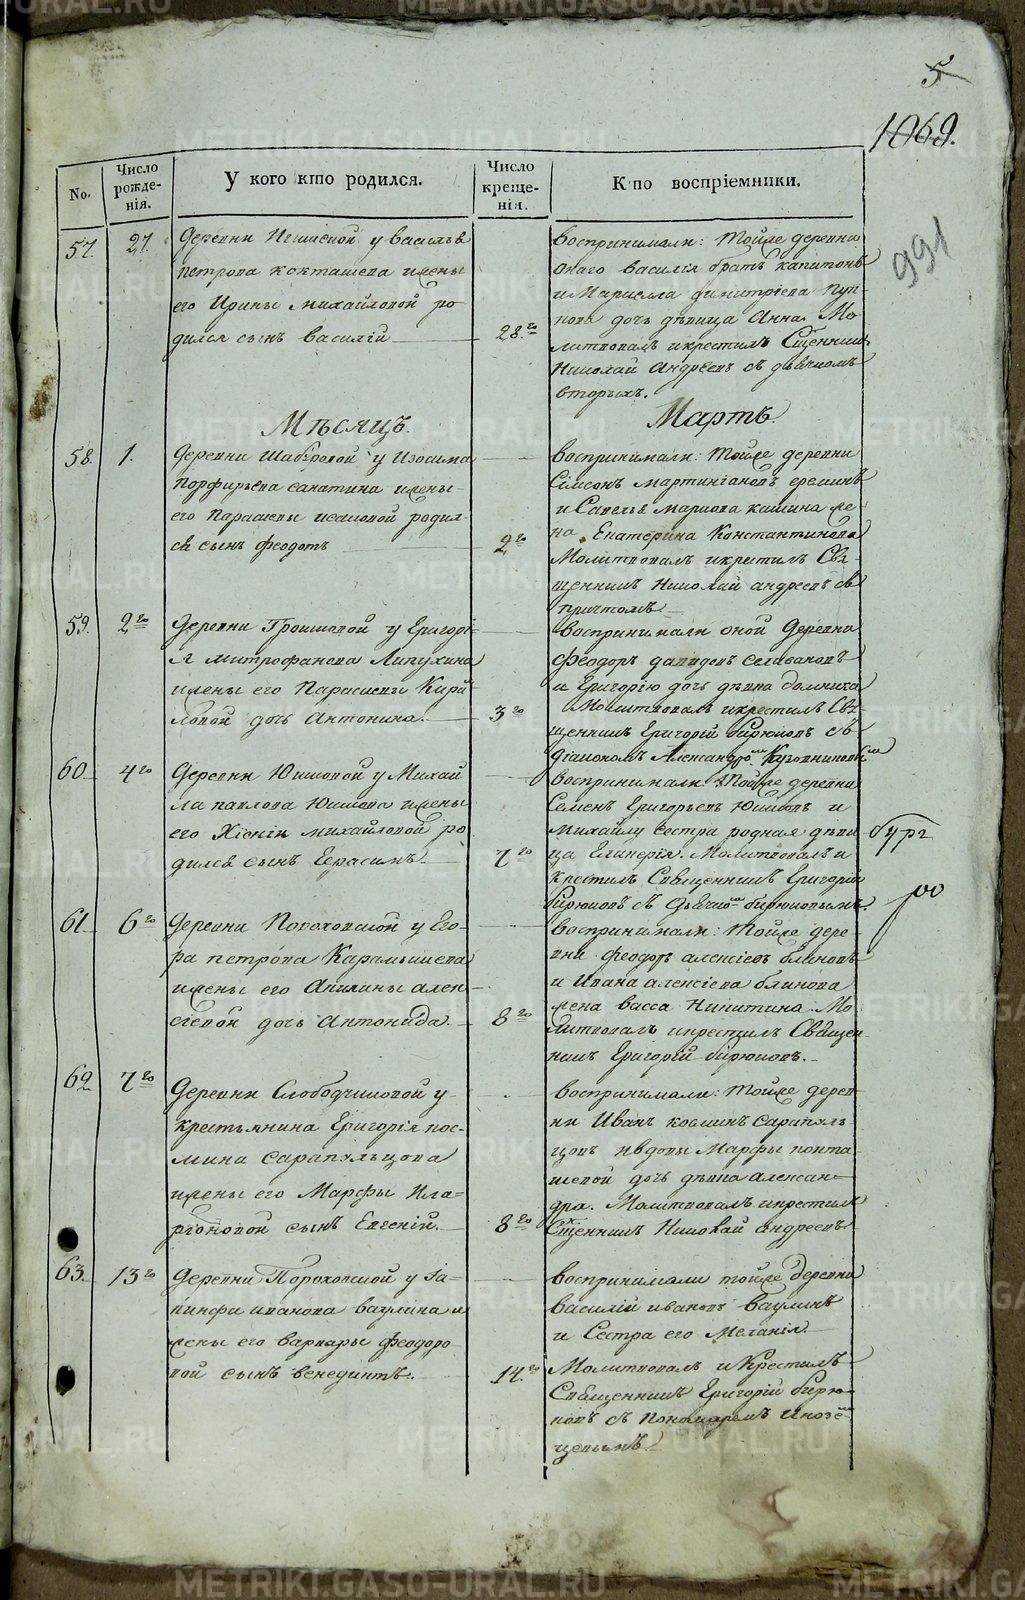 5
1069.
991
No.
Число рожде-нія.
У кого кто родился.
Число креще-нія.
Кто воспріемники.
57. 27. Деревни у Василья
Петрова Кокташева жены
его Ирины Михайловой ро
дился сынъ Василій
28.го
воспринимали: Тойже деревни
онаго Василія братъ Капитонъ
и Маркелла Димитріева Пуп-
кова дочь дѣвица Анна. Мо
литвовалъ и крестилъ Священникъ
Николай Андреевъ съ дьячкомъ
Вторыхъ.
Мѣсяцъ. Мартъ.
58. 1. Деревни Шабровой у Изосима
Порфирьева жены
его Парасковьи Исаковой родил-
ся сынъ Феодотъ
2го
воспринимали: Тойже деревни
Сімеонъ Мартиніановъ Ереминъ
и Савелья Маркова Кашина же
на Екатерина Константинова
Молитвовалъ и крестилъ Свя-
щенникъ Николай Андреевъ съ
причтомъ
59. 2го Деревни Грошовой у Григорі-
я Митрофанова Липухина
жены его Парасковьи Кири
ловой дочь Антонина.
3го
воспринимали оной Деревни
Феодоръ Давидовъ Селивановъ
и Григорію дочь дѣвка Домника
Молитвовалъ и крестилъ Свя-
щенникъ Григорій Бирюковъ съ
діакономъ Александромъ Кузовниковымъ
60. 4го Деревни Юшковой у Михай
ла Павлова Юшкова жены
его Ксеніи Михайловой ро
дился сынъ Герасимъ.
7го
воспринимали: Тойже деревни
Семенъ Григорьевъ Юшковъ и
Михайлу сестра родная дѣви
ца Гликерія. Молитвовалъ и
крестилъ Священникъ Григорій
Бирюковъ съ Дьячкомъ Бирюковымъ.
61. 6го Деревни Пороховской у Его-
ра Петрова Карамышева
жены его Акилины Алек-
сѣевой дочь Антонида.
8го
воспринимали: Тойже дере-
вни Феодоръ Алексіевъ Блиновъ
и Ивана Алексіева Блинова
жена Васса Никитина. Мо
литвовалъ и крестилъ Священ-
никъ Григорій Бирюковъ.
62. 7го Деревни Слободчиковой у
крестьянина Григорія Кос-
мина Сарапульцова
жены его Марфы Ила-
ріоновой сынъ Евгеній.
8го
воспринимали: Тойже дерев
ни Иванъ Косминъ Сарапуль
цовъ и вдовы Марфы
дочь дѣвка Алексан-
дра. Молитвовалъ и крестилъ
Священникъ Николай Андреевъ
63. 13го Деревни Пороховской у Іа-
кинфа Иванова Ваулина ж
ены его Варвары Феодоро
вой сынъ Венедиктъ.
14.го
воспринимали тойже деревни
Василій Ивановъ Ваулинъ
и Сестра его Меланія.
Молитвовалъ и Крестилъ
Священникъ Григорій Бирю-
ковъ съ Пономаремъ Инозем
цевымъ